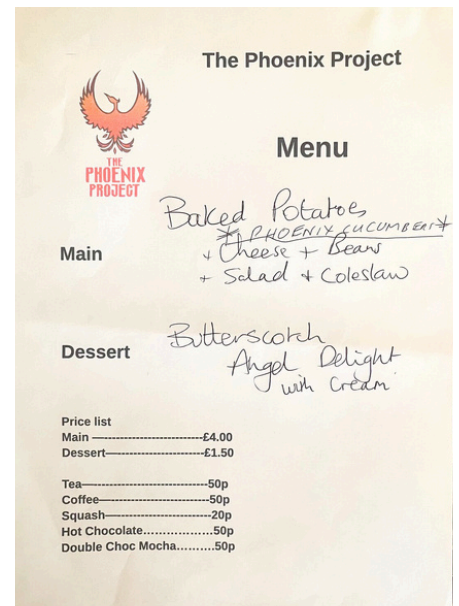 The Phoenix Project
THE
PHOENIX
PROJECT
Menu
Baked Potatoes
* PHOENIX CUCUMBERS *
Main
+ Cheese + Beans
+ Salad + Coleslaw
Dessert
Butterscotch
Angel Delight
with Cream
Price list
Main —---------------------------£4.00
Dessert—------------------------£1.50
Tea—-------------------------------50p
Coffee—---------------------------50p
Squash—-------------------------20p
Hot Chocolate………………50p
Double Choc Mocha……….50p